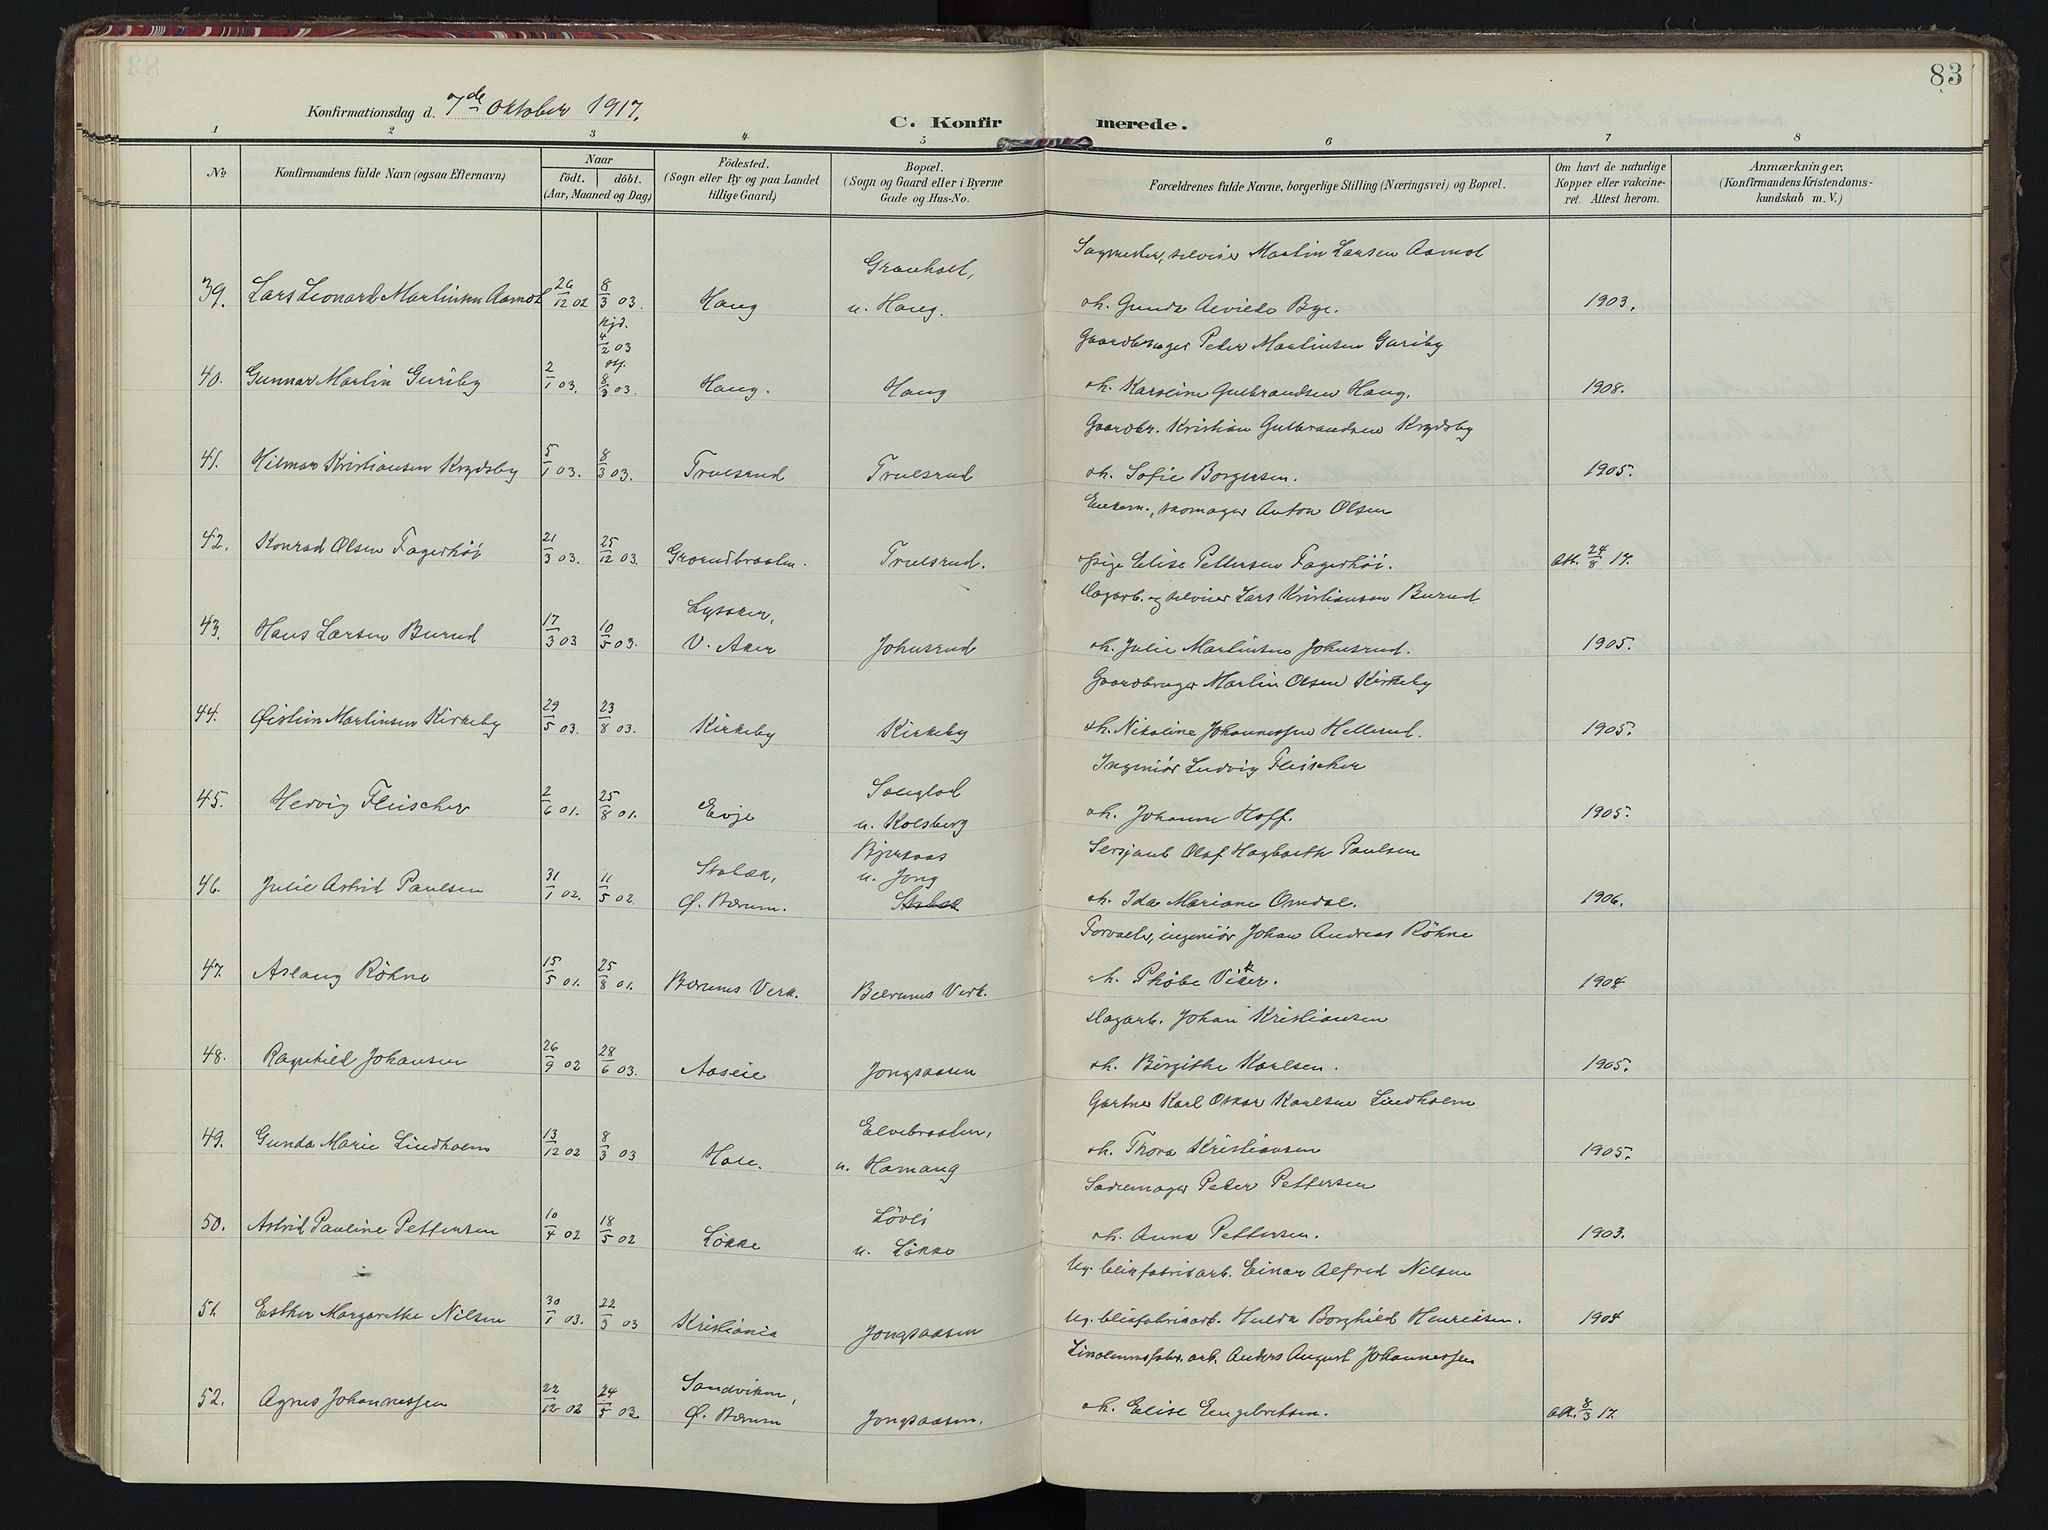 83
Konfirmationsdag d. 7de Oktober 1917.
C. Konfirmerede.
1 2 3 4 5 6 7 8
No
Konfirmandens fulde Navn (ogsaa Efternavn)
Naar
födt. döbt.
(Aar, Maaned og Dag)
Födested.
(Sogn eller By og paa Landet
tillige Gaard)
Bopæl.
(Sogn og Gaard eller i Byerne
Gade og Hus-No.
Forældrenes fulde Navne, borgerlige Stilling (Næringsvei) og Bopæl.
Om havt de naturlige
Kopper eller vakcine-
ret. Attest herom.
Anmærkninger,
(Konfirmandens Kristendoms-
kundskab m. V.)
Granholt, Martin Larsen Aamot
39. Lars Leonard Martinsen Aamot 26/12 02 8/3 03. Haug u. Haug. oh. Gunda Bye. 1903.
hjd. 4/2 03 Gaardbruger Peter Martinsen Guriby
40. Gunnar Martin Guriby 2/1 03. 8/3 03. Haug. Haug oh. Karoline Gulbrandsen Haug. 1908.
Gaardbr. Kristian Gulbrandsen Krydsby
41. Hilmar Kristiansen Krydsby 5/1 03. 8/3 03. Trulsrud Trulsrud oh. Sofie Borgersen. 1905.
Enkem., skomager Anton Olsen
42. Konrad Olsen Fagerhöi 21/3 03. 25/12 03. Trulsrud. pige Elise Pettersen Fagerhöi. Att. 24/8 17.
Lysaker, Dagarb. og selveier Lars Kristiansen Burud
43. Hans Larsen Burud 17/3 03 10/5 03. V. Aker Johnsrud oh. Julie Martinsen Johnsrud. 1905.
Gaardbruger Martin Olsen Kirkeby
44. Øistein Martinsen Kirkeby 29/5 03. 23/8 03. Kirkeby Kirkeby oh. Nikoline Johannessen Hellerud. 1905.
Ingeniör Ludvig Fleischer
45. Hedvig Fleischer 2/6 01. 25/8 01. Evje u. Kolsberg oh. Johanne Hoff. 1905.
Stabæk, Bjerkaas Sersjant Olaf Hagbarth Paulsen
46. Julie Astrid Paulsen 31/1 02. 11/5 02. Ø. Bærum. u. Jong Stabæk oh. Ida Mariane Omdal. 1906.
Forvalter, ingeniör Johan Andreas Röhne
47. Aslaug Röhne 15/5 01. 25/8 01. Bærums Verk. Bærums Verk. oh. Phöbe 1904
Dagarb. Johan Kristiansen
48. Ragnhild Johansen 26/9 02 28/6 03. Aaseie Jongsaasen oh. Birgithe Karlsen. 1905.
Elvebraaten, Gartner Karl Oskar Karlsen Lindholm
49. Gunda Marie Lindholm 13/12 02 8/3 03 Hole. u. Hamang oh. Thora Kristiansen 1905.
Lövli Sadelmager Peder Pettersen
50. Astrid Pauline Pettersen 10/4 02 18/5 02 Lökke u. Lökke oh. Anna Pettersen. 1903.
Ug. blikfabrikarb. Einar Alfred Nilsen
51. Esther Margarethe Nilsen 30/1 03. 22/3 03 Kristiania Jongsaasen Ug. blikfabrikarb. Hulda Borghild Henriksen. 1904
Sandviken, Linoleumsfabr. arb. Anders August Johannessen
52. Agnes Johannessen 22/12 02 24/5 03 Ø. Bærum Jongsaasen. oh. Elise Engebretsen. Att. 8/3 17.